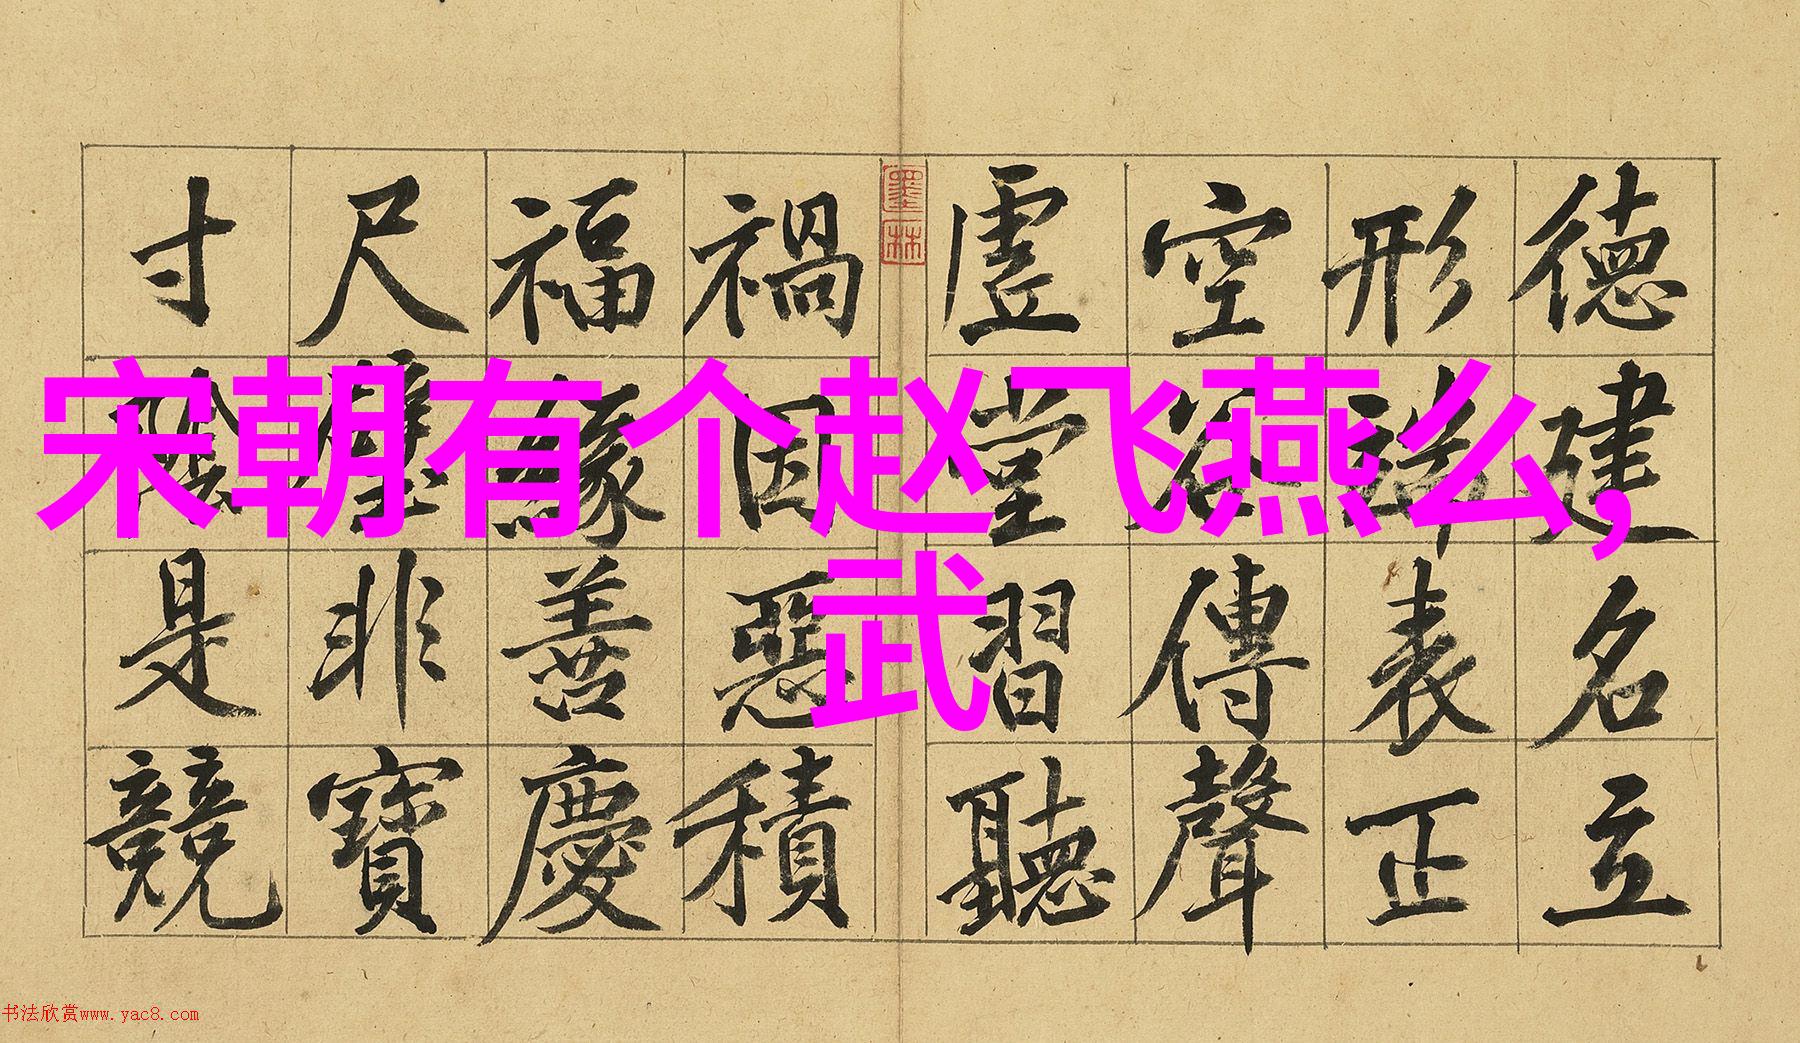 宋朝有个赵飞燕么,
武
德建名立
形端表正
空谷傳聲
虛堂習聽
禍因惡積
福緣善慶
尺璧非寶
寸陰是競
墨林
书法欣赏www.yac8.com